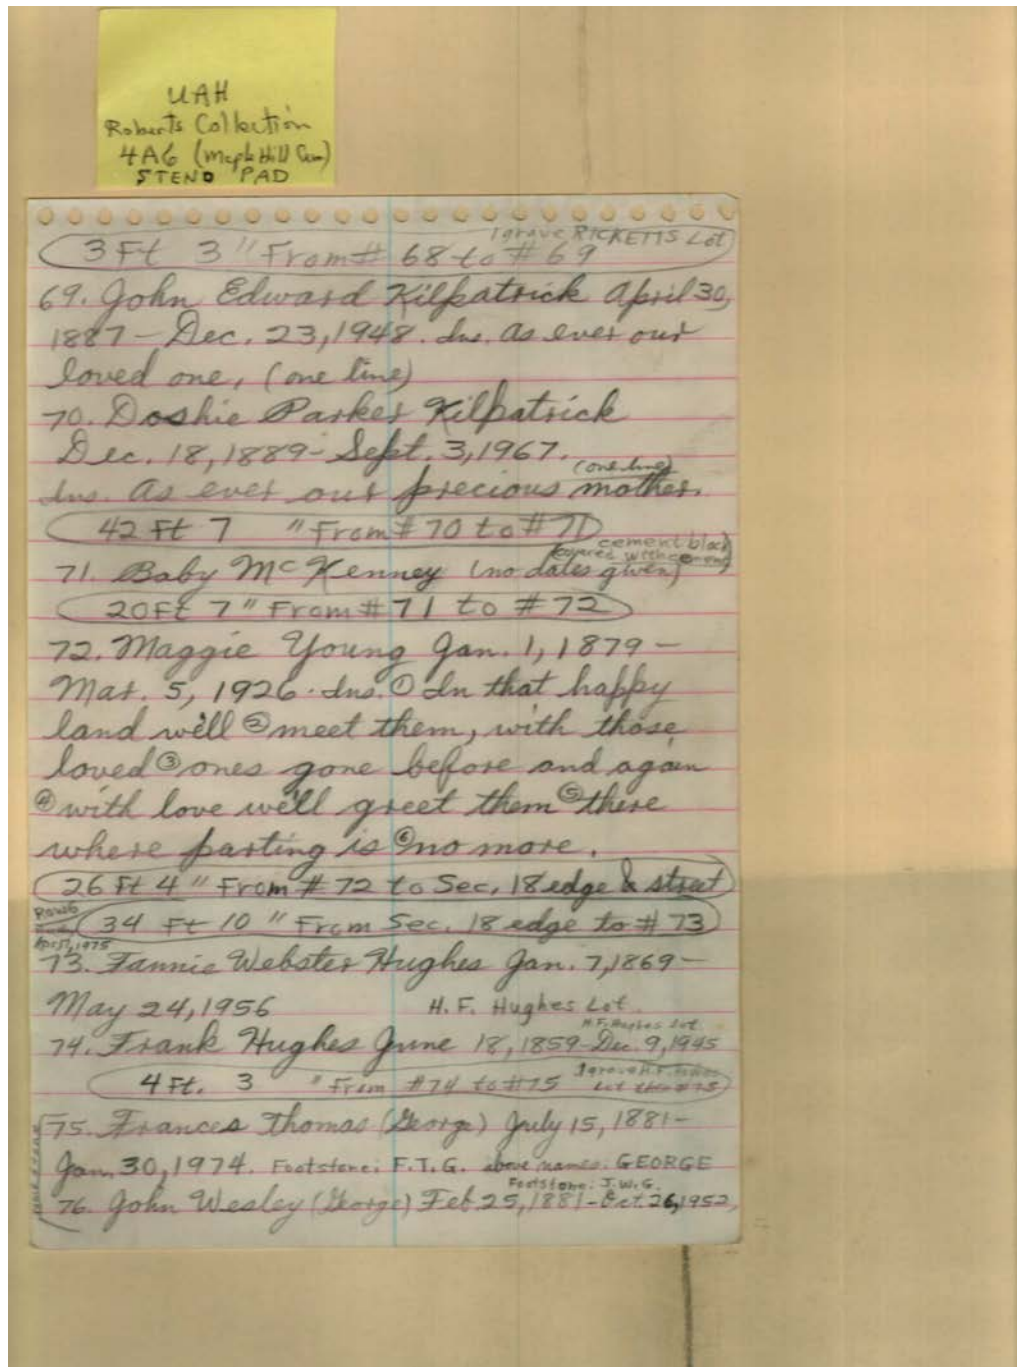 UAH
Roberts Collection
4A6 (Maple Hill Cem)
STENO PAD
1 grave RICKETTS Lot
3 Ft 3 " From # 68 to # 69
69. John Edward Kilpatrick April 30,
1887 - Dec. 23, 1948. Ins. As ever our
loved one, (one line)
70. Doshie Parker Kilpatrick
Dec. 18, 1889 - Sept. 3, 1967.
(one line)
Ins. As ever our precious mother.
42 Ft 7 " From # 70 to # 71
cement block
covered with cement
71. Baby McKenney (no dates given)
20 Ft 7 " From # 71 to # 72
72. Maggie Young Jan. 1, 1879 -
Mar. 5, 1926. Ins. ① In that happy
land we'll ② meet them, with those
loved ③ ones gone before and again
④ with love we'll greet them ⑤ there
where parting is ⑥ no more.
26 Ft 4 " From # 72 to Sec. 18 edge & street
Row 6
34 Ft 10 " From Sec. 18 edge to # 73
1975
73. Fannie Webster Hughes Jan. 7, 1869 -
May 24, 1956 H. F. Hughes Lot
H. F. Hughes Lot
74. Frank Hughes June 18, 1859 - Dec. 9, 1945
1 grave H. F.
4 Ft. 3 " From # 74 to # 75 Lot then # 75
75. Frances Thomas (George) July 15, 1881 -
Jan. 30, 1974. Footstone: F.T.G. above names: GEORGE
Footstone: J.W.G.
76. John Wesley (George) Feb. 25, 1881 - Oct. 26, 1952,